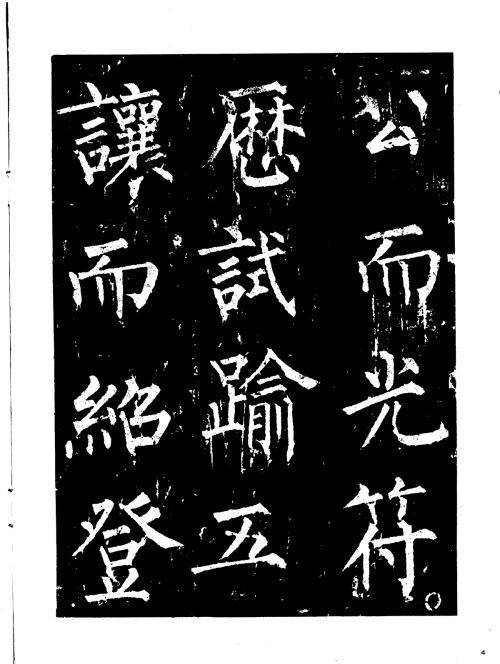 公而光符
歴試踰五
讓而紹登
4